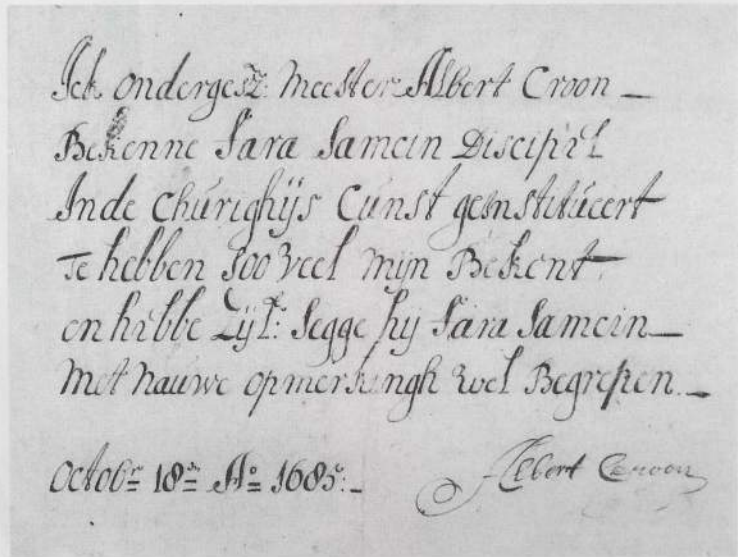 Ick ondergesz: Meester Albert Croon —
Bekenne Sara Samein Discipel
Inde Chúrighijs Cúnst geinstitúeert
Te hebben soo veel mijn Bekent
en hebbe Zijl: segge hij Sara Samein —
Met nauwe opmerkingh wel Begrepen. —
Octobr 18en Ao 1685: —
Albert Croon